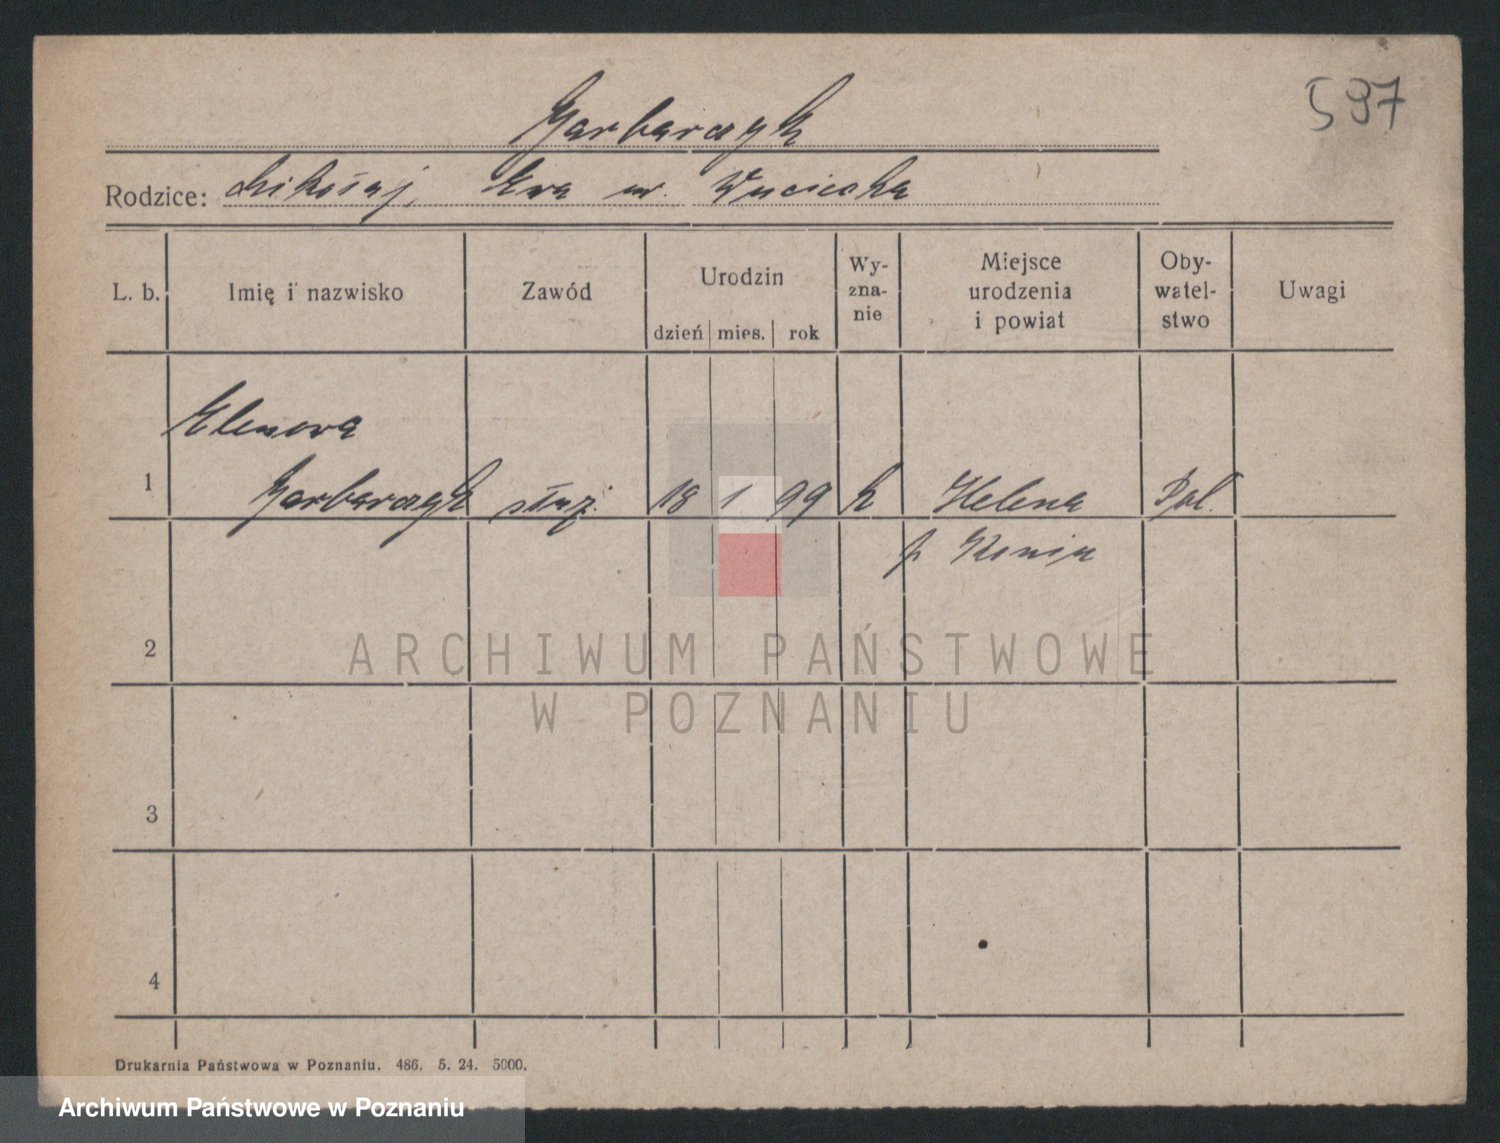 597
Garbarczyk
Rodzice: Mikołaj, Ewa ur.
L. b. Imię i nazwisko Zawód Urodzin dzień mies. rok Wy-zna-nie Miejsce urodzenia i powiat Oby-watel-stwo Uwagi
1 Elenora
Garbarczyk służ. 18 1 99 k Helena Pol.
p. Konin
2
ARCHIWUM PAŃSTWOWE
W POZNANIU
3
4
Drukarnia Państwowa w Poznaniu. 486. 5. 24. 5000.
Archiwum Państwowe w Poznaniu